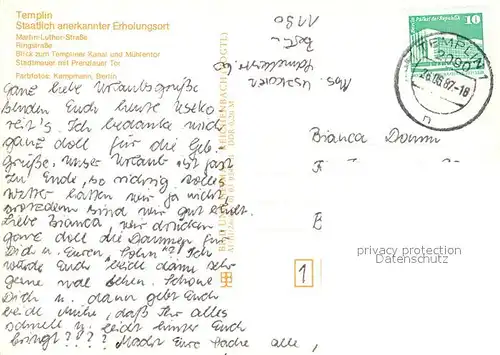 Templin
Staatlich anerkannter Erholungsort
Martin-Luther-Straße
Ringstraße
Blick zum Templiner Kanal und Mühlentor
Stadtmauer mit Prenzlauer Tor
Farbfotos: Kampmann, Berlin
Abs.
Berlin
1190
10
TEMPLIN
2090
26.06.87-18
n
Ganz liebe Urlaubsgrüße
senden Euch heute
Ich bedanke mich
ganz doll für die Geb.-
Grüße. Unser Urlaub ist fast
zu Ende, so richtig tolles
Wetter hatten wir ja nicht,
trotzdem sind wir gut erholt.
Liebe Bianca, wir drücken
ganz doll die Daumen für
Dich u. Euren "Sohn"? Ich
würde Euch beide dann sehr
gerne mal sehen. Schone
Dich u. dann gebt Euch
beide Mühe, daß Ihr alles
schnell u. leicht hinter Euch
bringt???? Macht Eure Sache alle,
Bianca
privacy protection
Datenschutz
1